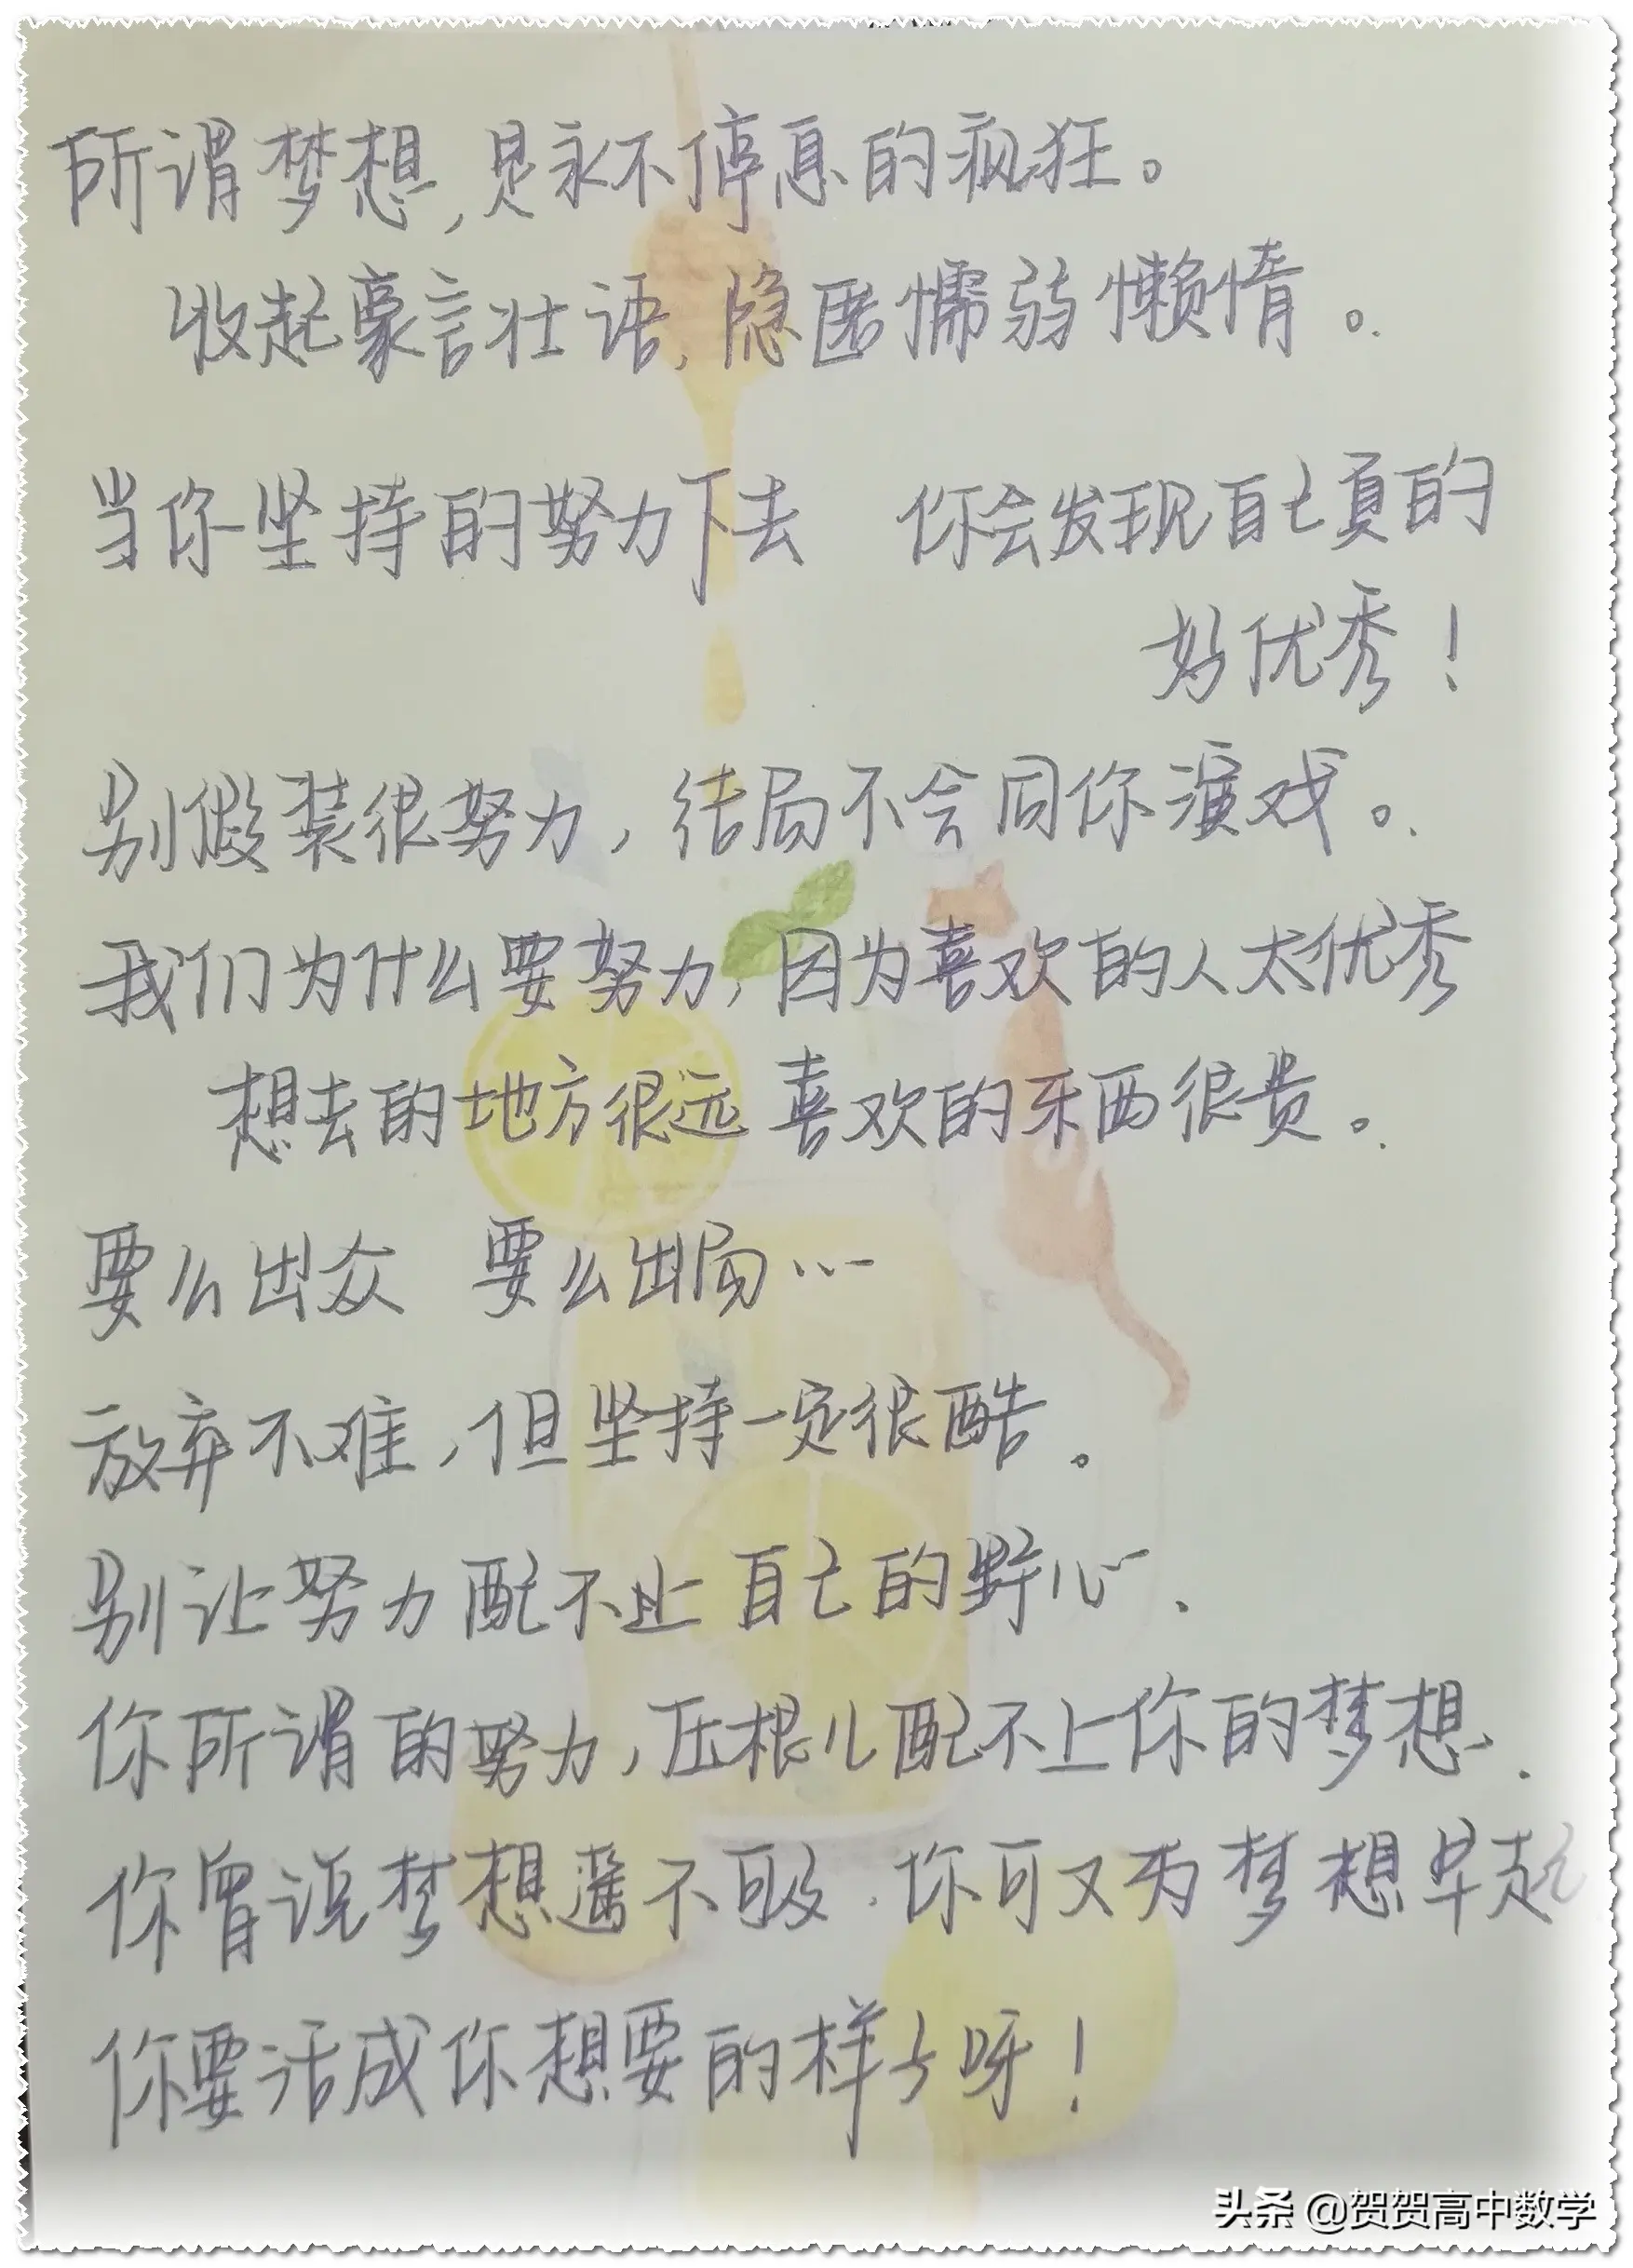 所谓梦想,是永不停息的疯狂。
收起豪言壮语,隐匿懦弱懒惰。
当你坚持的努力下去 你会发现自己真的
好优秀!
别假装很努力,结局不会同你演戏。
我们为什么要努力,因为喜欢的人太优秀
想去的地方很远 喜欢的东西很贵。
要么出众 要么出局…
放弃不难,但坚持一定很酷。
别让努力配不上自己的野心.
你所谓的努力,压根儿配不上你的梦想.
你曾说梦想遥不可及.你可又为梦想早起
你要活成你想要的样子呀!
头条 @贺贺高中数学